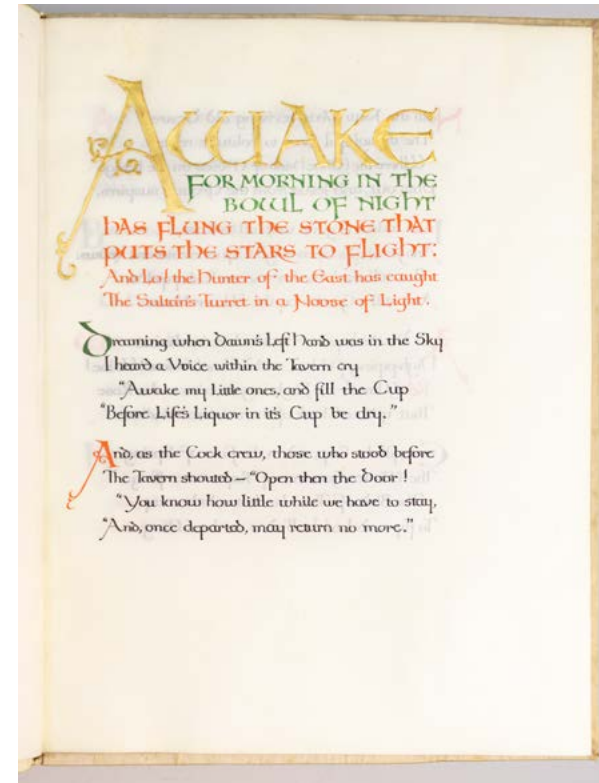 AWAKE
FOR MORNING IN THE
BOWL OF NIGHT
HAS FLUNG THE STONE THAT
PUTS THE STARS TO FLIGHT:
And Lo! the Hunter of the East has caught
The Sultán's Turret in a Noose of Light.
Dreaming when Dawn's Left Hand was in the Sky
I heard a Voice within the Tavern cry
"Awake my Little ones, and fill the Cup
"Before Life's Liquor in its Cup be dry."
And, as the Cock crew, those who stood before
The Tavern shouted – "Open then the Door!
"You know how little while we have to stay,
"And, once departed, may return no more."